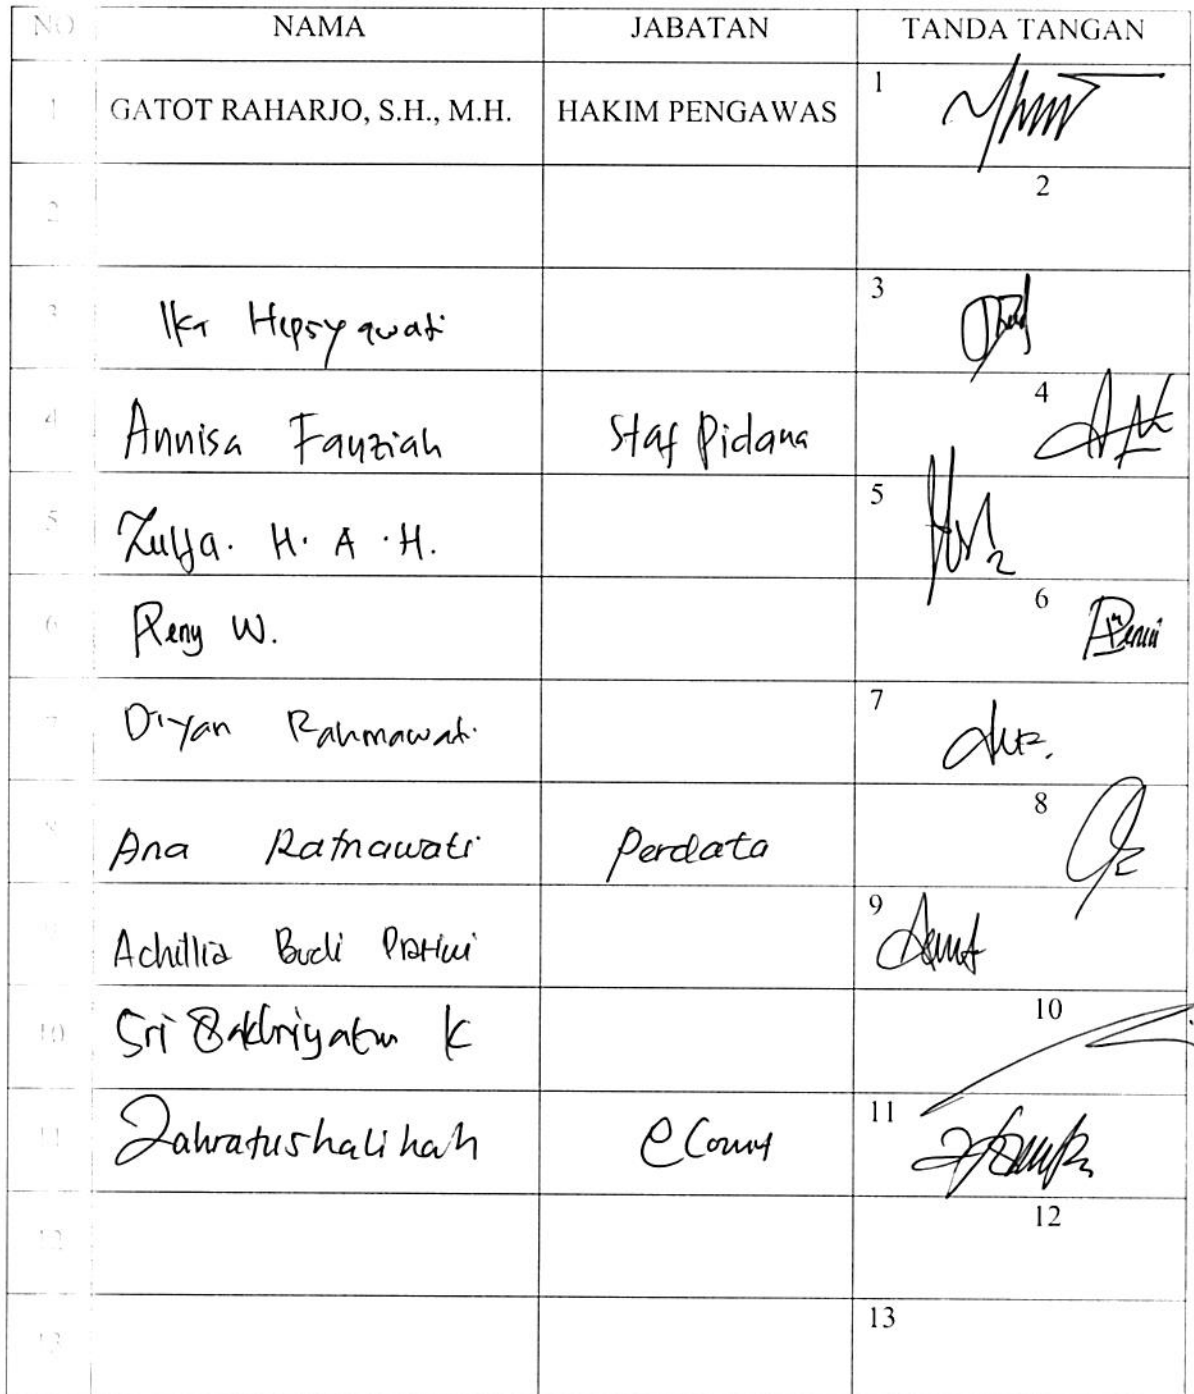 NO NAMA JABATAN TANDA TANGAN
1 GATOT RAHARJO, S.H., M.H. HAKIM PENGAWAS 1
2 2
3 Ika Hepsy awati 3
4 Annisa Fauziah Staf Pidana 4
5 Zulfa. H. A. H. 5
6 Reny W. 6
7 Diyan Rahmawati 7
8 Ana Ratnawati Perdata 8
9 Achillia Budi Pratiwi 9
10 Sri K 10
11 Zahratushalihah e Court 11
12 12
13 13